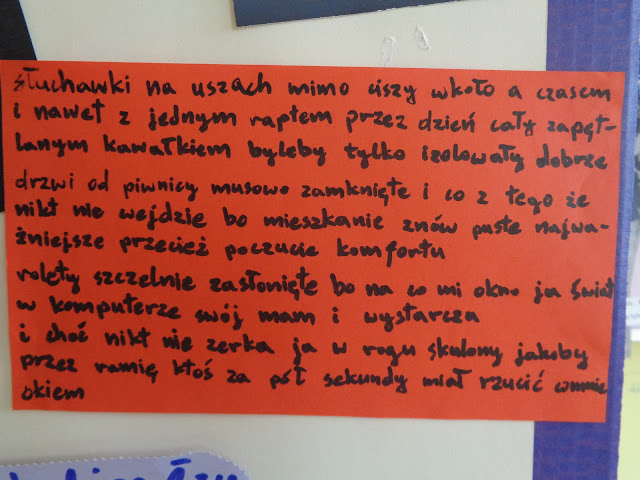 słuchawki na uszach mimo ciszy wkoło a czasem
i nawet z jednym raptem przez dzień cały zapęt-
lanym kawałkiem byleby tylko izolowały dobrze
drzwi od piwnicy musowo zamknięte i co z tego że
nikt nie wejdzie bo mieszkanie znów puste najwa-
żniejsze przecież poczucie komfortu
rolety szczelnie zasłonięte bo na co mi okno ja świat
w komputerze swój mam i wystarcza
i choć nikt nie zerka ja w rogu skulony jakoby
przez ramię ktoś za pół sekundy miał rzucić we mnie
okiem